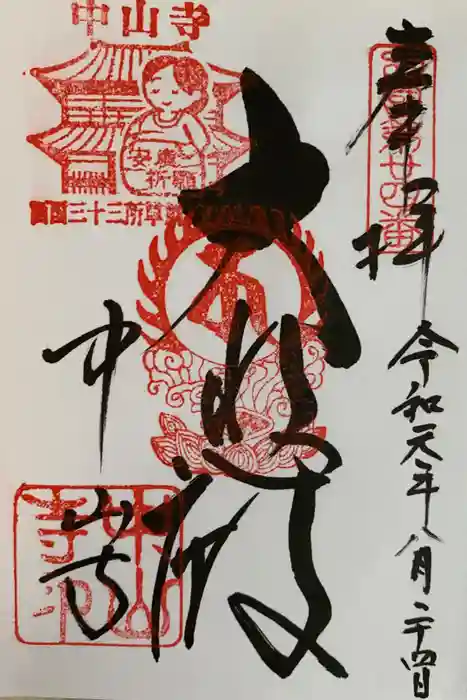 奉拝
令和元年八月二十四日
大悲殿
中山寺
中山寺
安産
祈願
西国三十三所草創
西国第廿四番
中山寺印